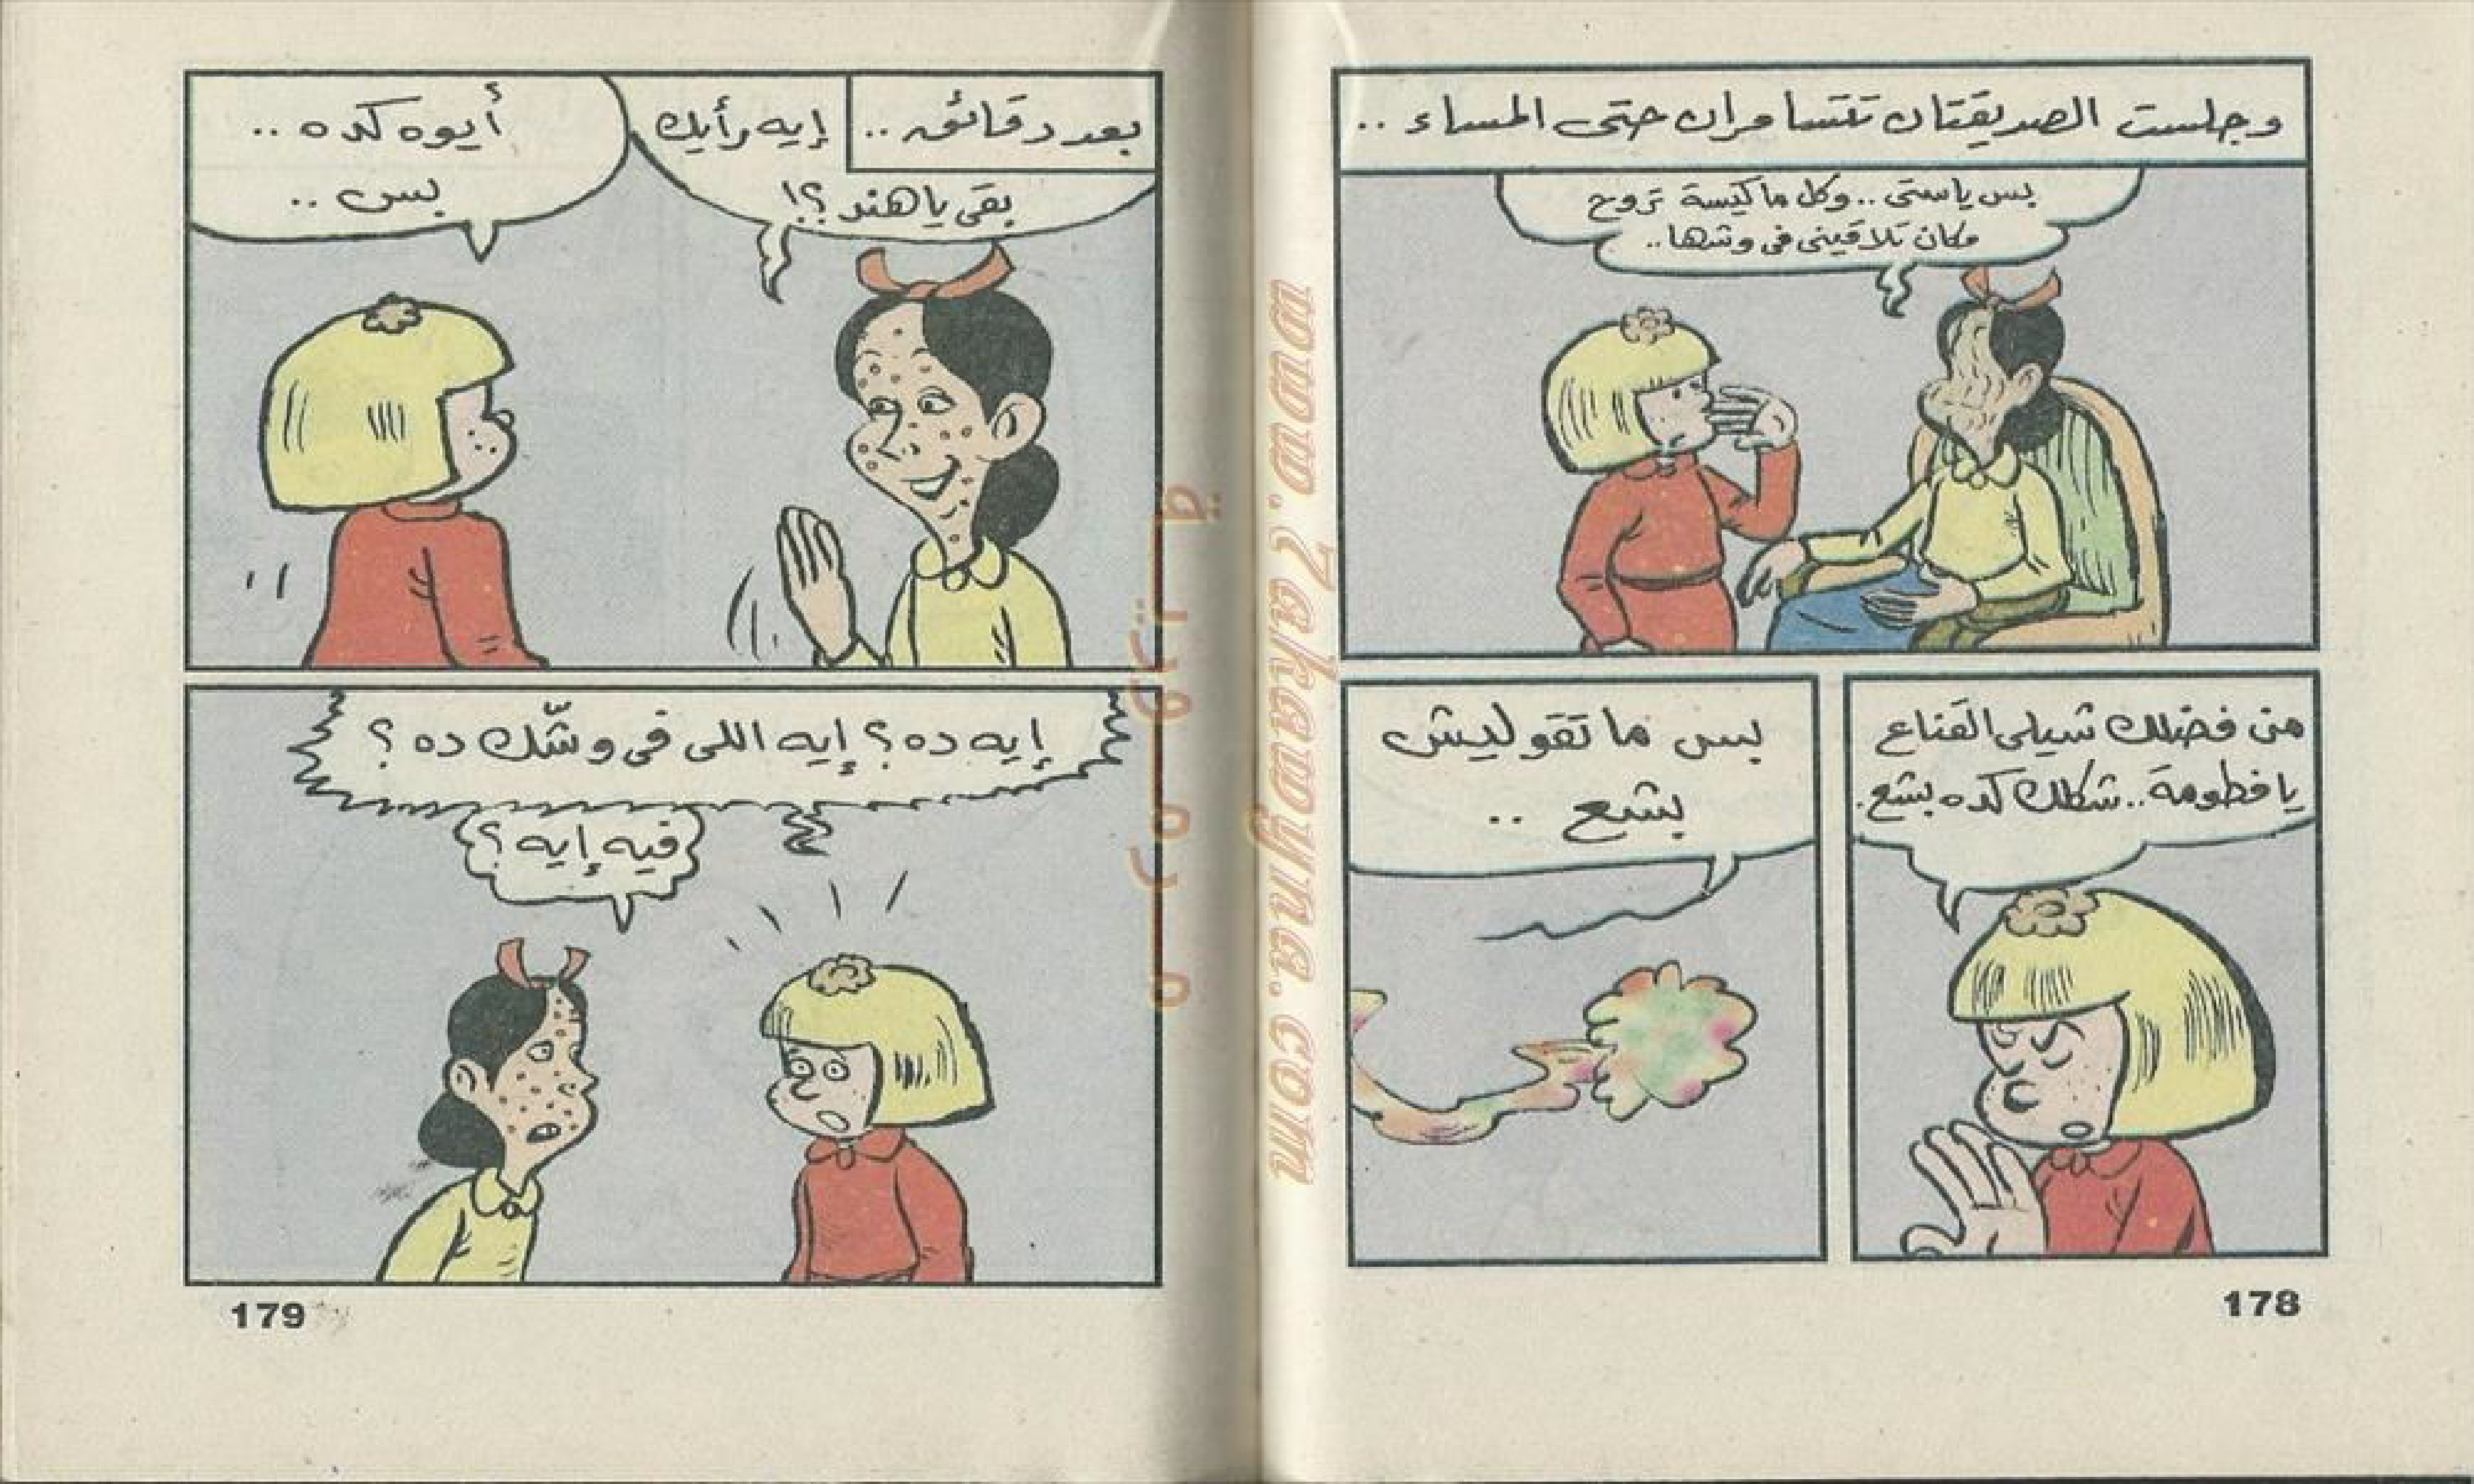 وجلست الصديقتان تتسامران حتى المساء ..
بس ياستى .. وكل ما كيسة تروح
مكان تلاقينى فى وشها ..
من فضلك شيلى القناع
يا فطومة .. شكلك كده بشع .
بس ما تقوليش
بشع ..
178
بعد دقائق ..
إيه رأيك
بقى يا هند ؟!
أيوه كده ..
بس ..
إيه ده ؟ إيه اللى فى وشّك ده ؟
فيه إيه ؟
179
www.7akawyna.com